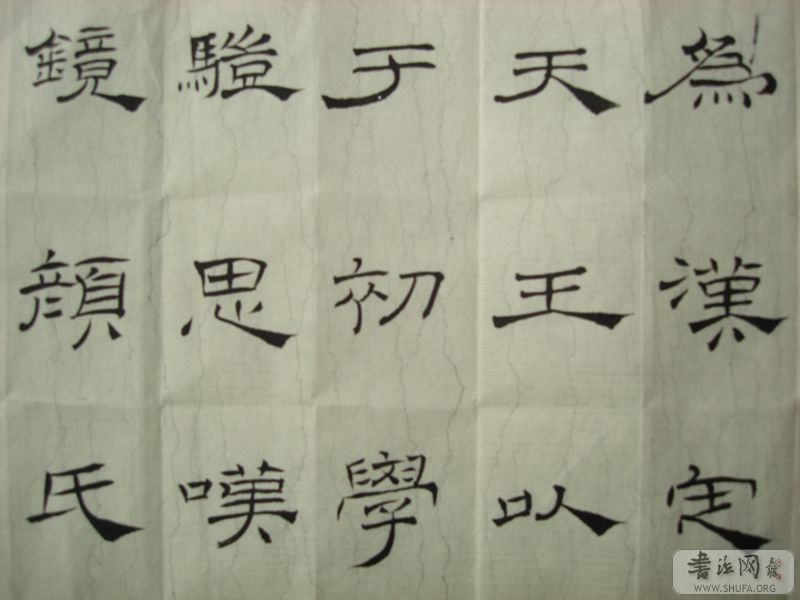 爲漢定
天王以
于初學
思嘆
鏡顏氏
書法网
WWW.SHUFA.ORG